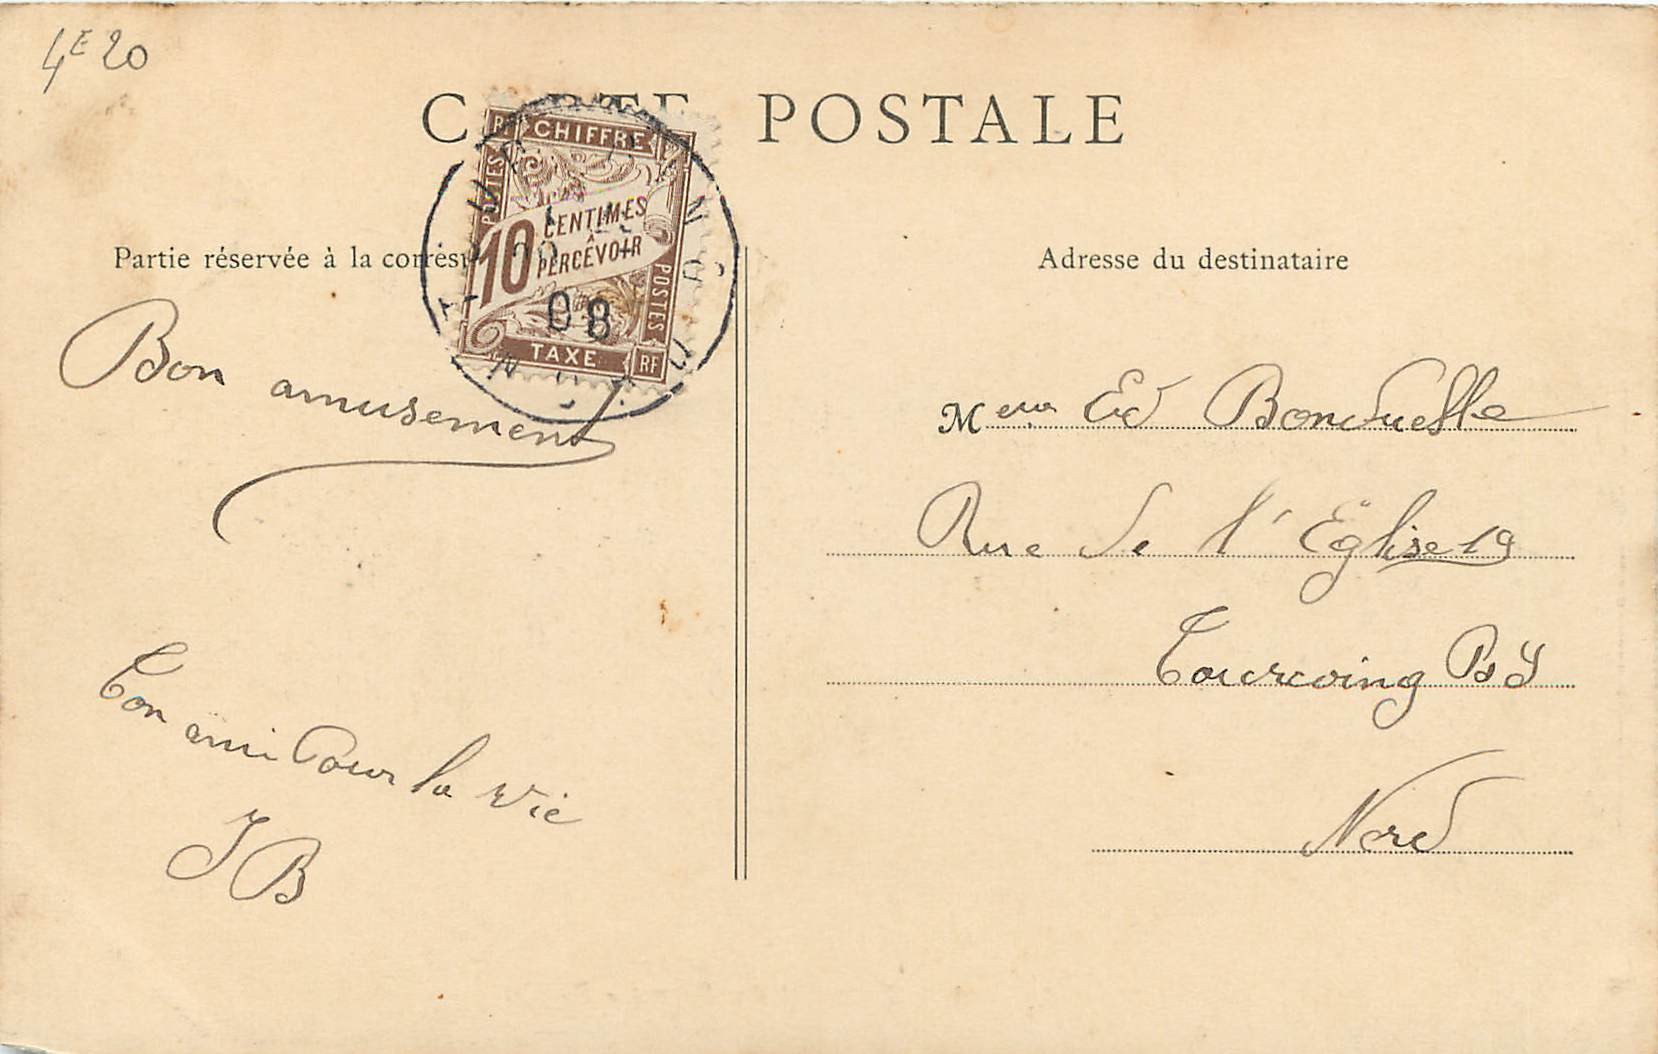 4E20
CARTE POSTALE
RF CHIFFRE
POSTES
10 CENTIMES
À
PERCEVOIR
POSTES
TAXE RF
08
Partie réservée à la corresp
Adresse du destinataire
Bon amusement
Ton ami Pour la vie
JB
Ed Bonduelle
Rue de l'Église 19
Tourcoing
Nord